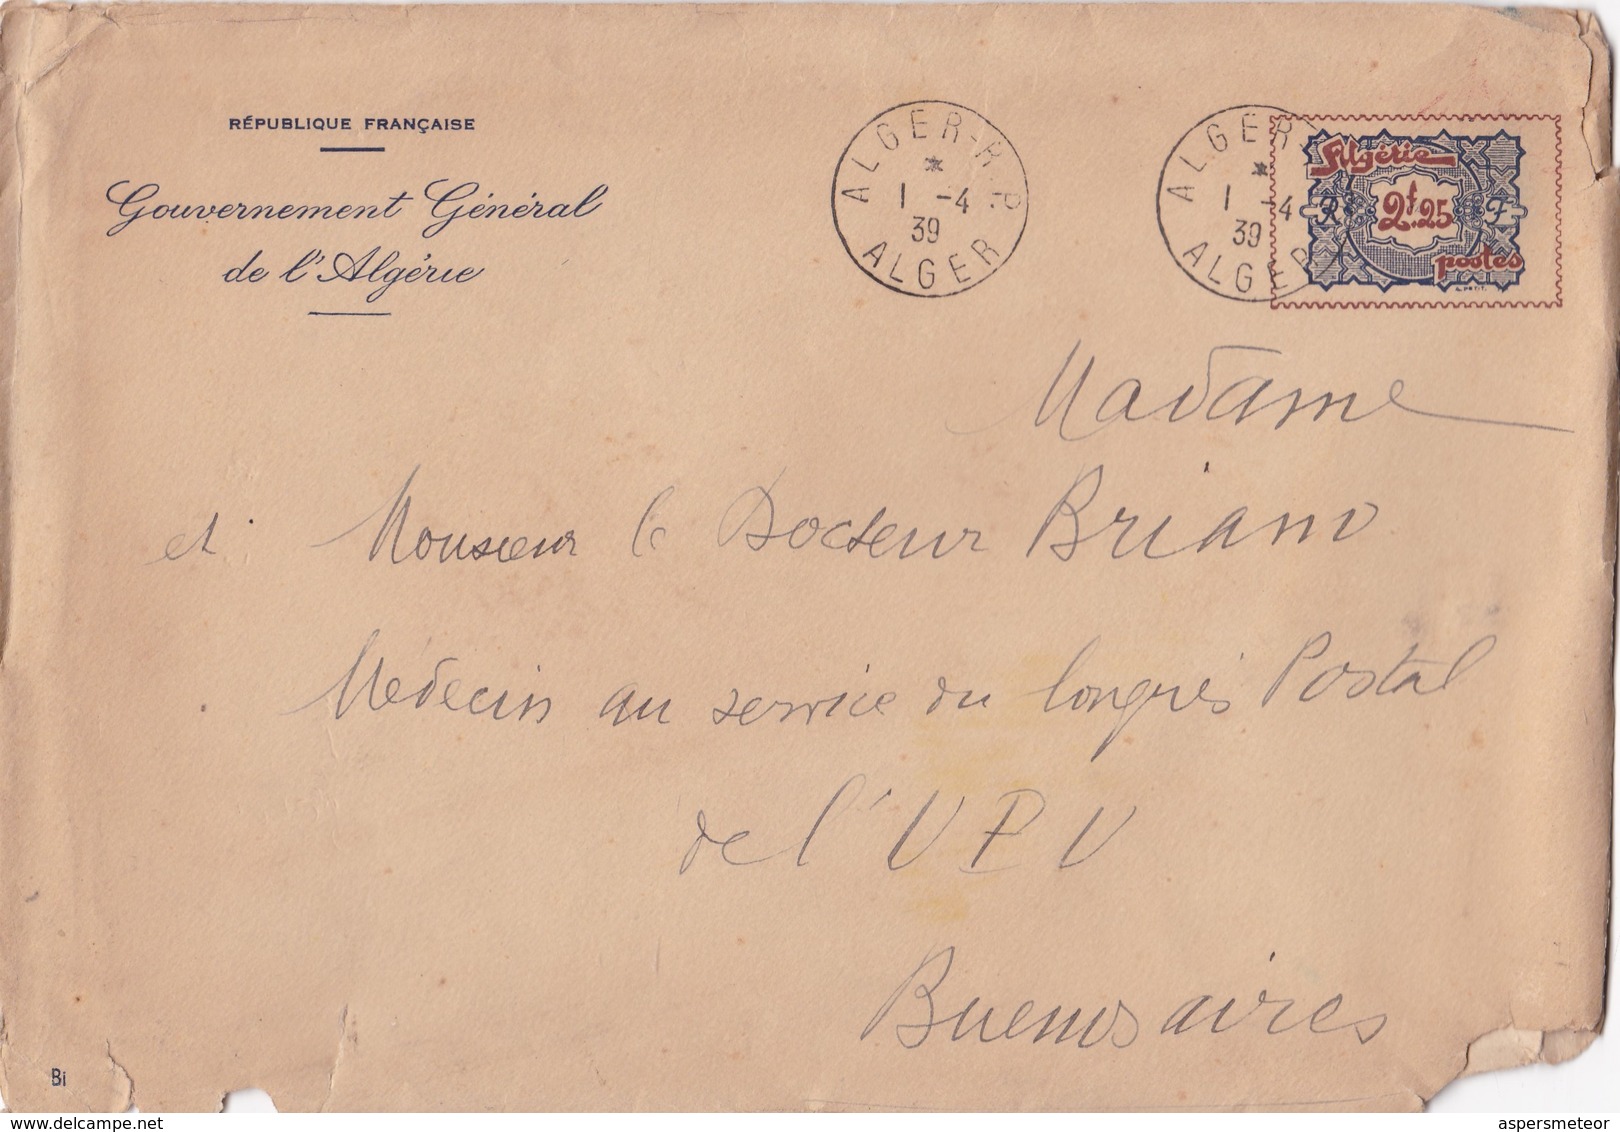 RÉPUBLIQUE FRANÇAISE
Gouvernement Général
de l'Algérie
ALGER-R.P.
*
1 -4
39
ALGER
ALGER
*
1 -4
39
ALGER
Algérie
R 2f.25 F
postes
Madame
et Monsieur le Docteur Briano
Médecin au service du Congrès Postal
de l'UPU
Buenos aires
Bi
delcampe.net
aspersmeteor